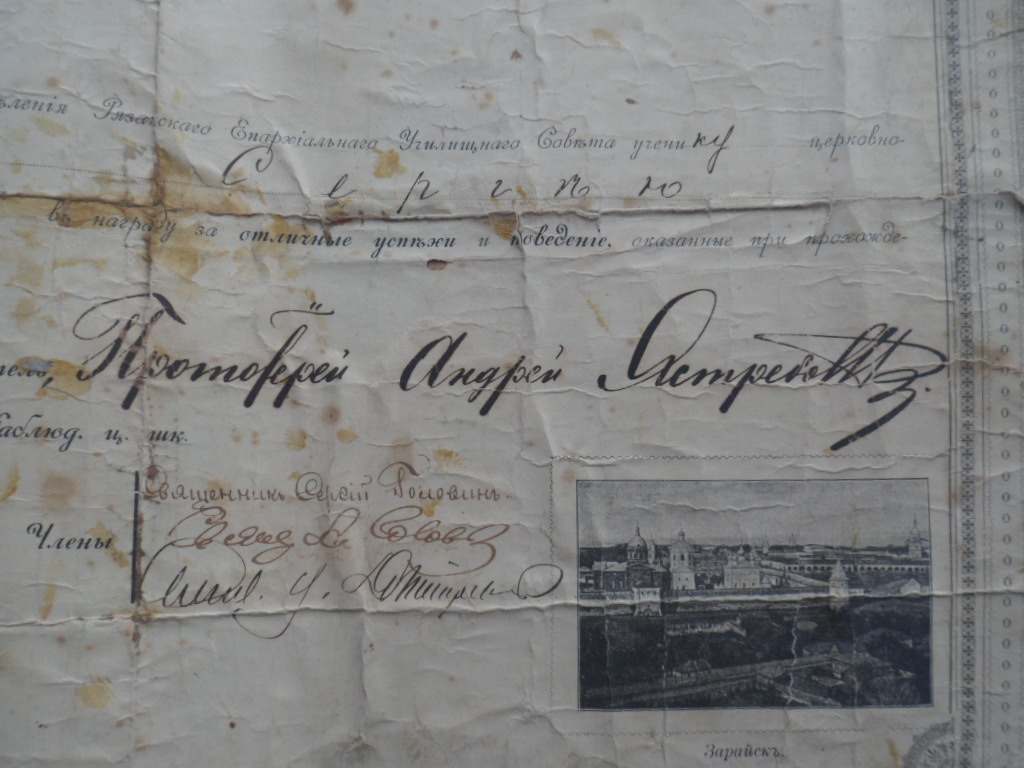 вленія Рязанскаго Епархіальнаго Училищнаго Совѣта ученику церковно-
Сергѣю
въ награду за отличные успѣхи и поведеніе, оказанные при прохожде-
Протоіерей Андрей Ястребов
наблюд. ц. шк.
Члены
Священникъ Сергій Головинъ.
Зарайскъ.